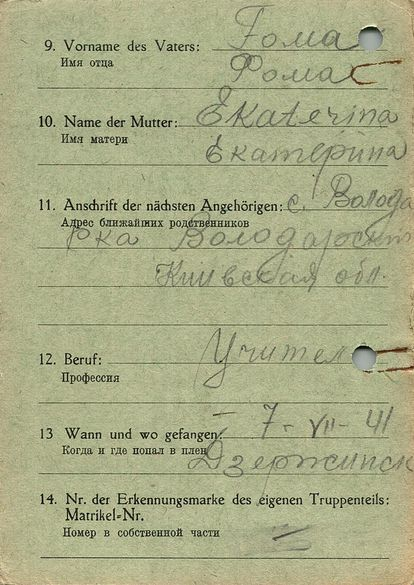 9. Vorname des Vaters: Тома
Имя отца Фома
10. Name der Mutter: Ekaterina
Имя матери Екатерина
11. Anschrift der nächsten Angehörigen: с. Волода
Адрес ближайших родственников
рка Володарский
Киевская обл.
12. Beruf: Учител
Профессия
13 Wann und wo gefangen: 7 - VII - 41
Когда и где попал в плен Дзержинск
14. Nr. der Erkennungsmarke des eigenen Truppenteils:
Matrikel-Nr.
Номер в собственной части